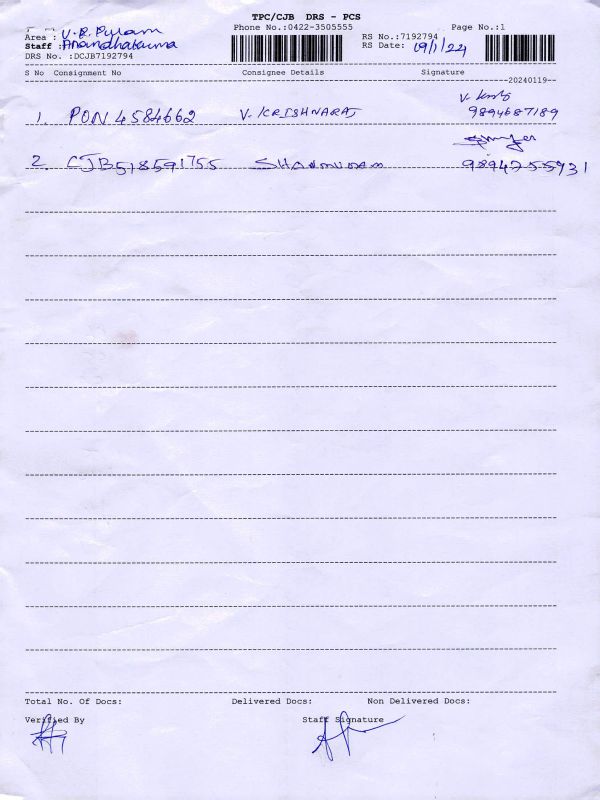 TPC/CJB DRS - PCS
Area : V.R. Pulam Phone No.:0422-3505555 Page No.:1
Staff : Anandhakuma RS No.:7192794
RS Date: 09/1/24
DRS No. :DCJB7192794
S No Consignment No Consignee Details Signature
20240119
1. PON 4584662 V. KRISHNARAJ 9894687189
2. CJB518591755 9894255931
Total No. Of Docs: Delivered Docs: Non Delivered Docs:
Verified By Staff Signature